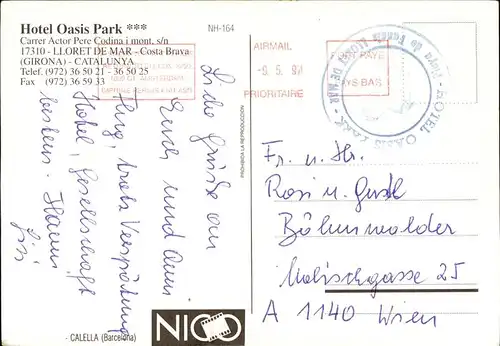 Hotel Oasis Park ***
Carrer Actor Pere Codina i mont, s/n
17310 - LLORET DE MAR - Costa Brava
(GIRONA) - CATALUNYA
Telef. (972) 36 50 21 - 36 50 25
Fax (972) 36 59 33
NH-164
AIRMAIL
- 9. 5. 97
PRIORITAIRE
PAYÉ
PAYS-BAS
HOTEL OASIS PARK
LLORET DE MAR
Liebe Grüße an
Euch und
Flug, trotz Verspätung
Hotel, Gesellschaft
bestens.
PROHIBIDA LA REPRODUCCION
Fr. u. Hr.
Rosi u. Gustl
Böhmwalder
Molischgasse 25
A 1140 Wien
- CALELLA (Barcelona)
NICO